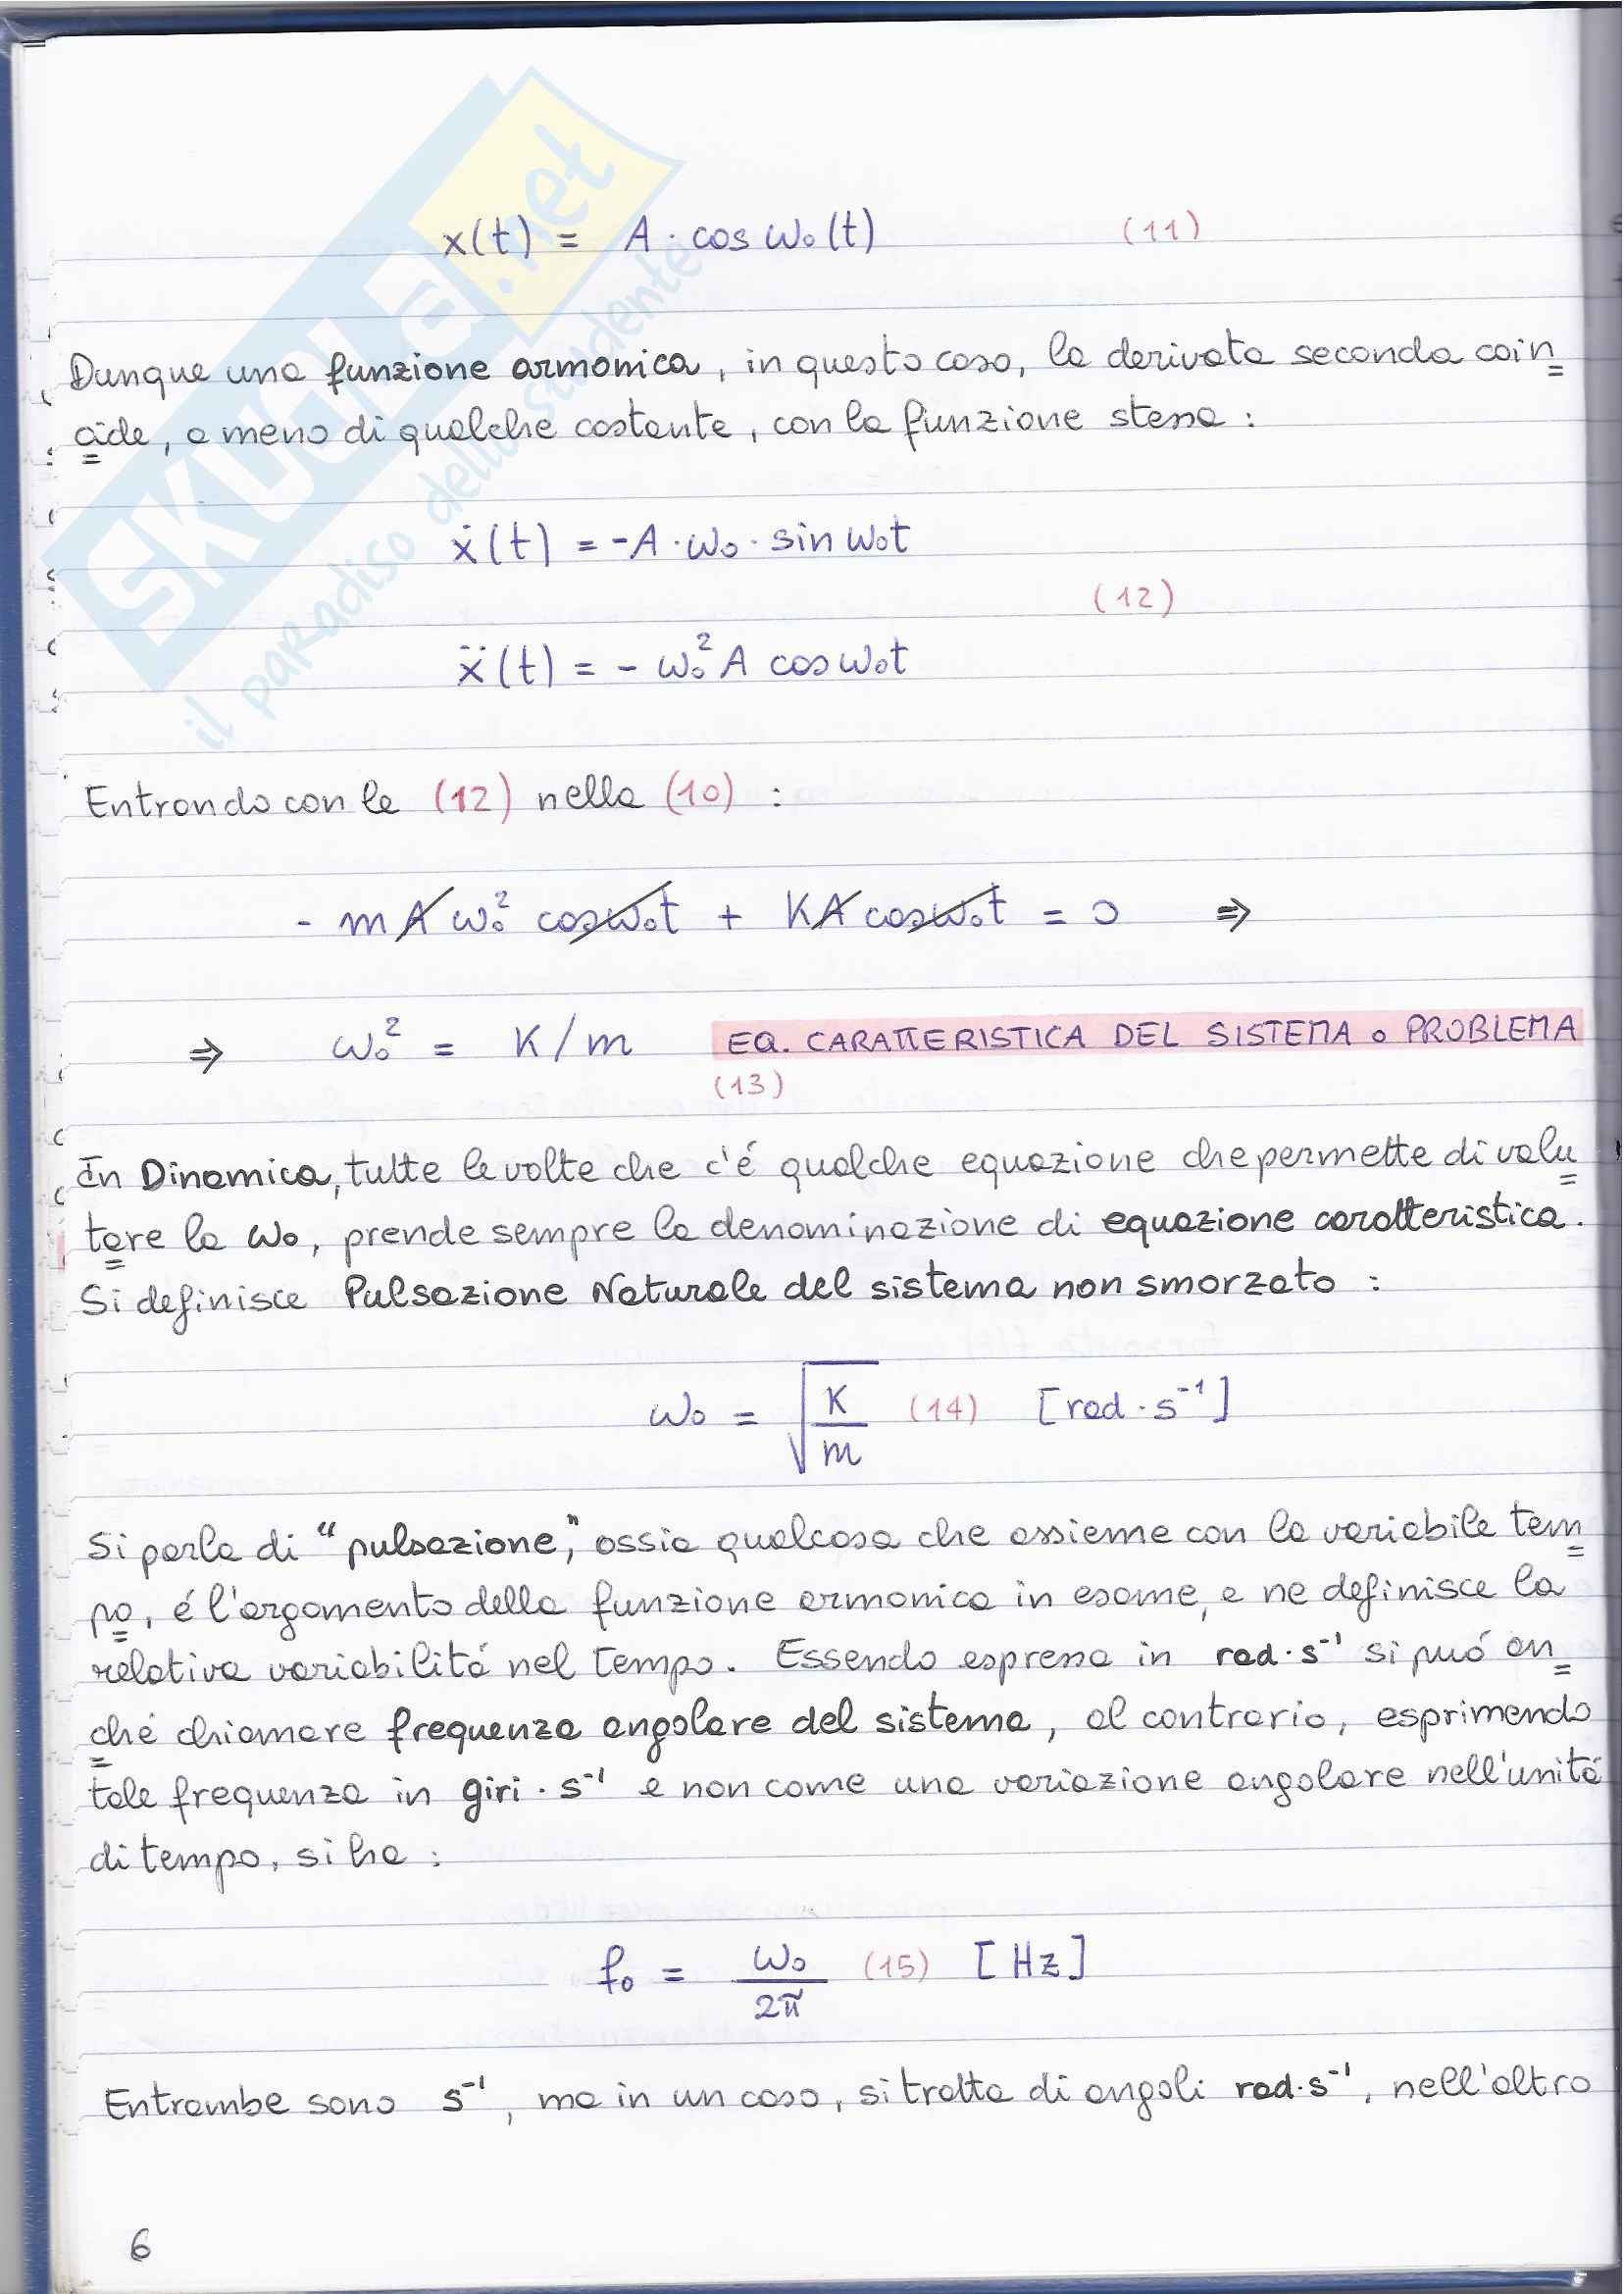 SKUOLA.net
il paradiso dello studente
x(t) = A · cos ω₀(t) (11)
Dunque una funzione armonica, in questo caso, la derivata seconda coin
cide, a meno di qualche costante, con la funzione stessa :
ẋ(t) = -A · ω₀ · sin ω₀t
(12)
ẍ(t) = - ω₀² A cos ω₀t
Entrando con le (12) nella (10) :
- m A ω₀² cos ω₀t + K A cos ω₀t = 0 ⇒
⇒ ω₀² = K / m EQ. CARATTERISTICA DEL SISTEMA o PROBLEMA
(13)
In Dinamica, tutte le volte che c'é qualche equazione che permette di valu
tare la ω₀, prende sempre la denominazione di equazione caratteristica.
Si definisce Pulsazione Naturale del sistema non smorzato :
ω₀ = √(K/m) (14) [rad · s⁻¹]
Si parla di "pulsazione", ossia qualcosa che assieme con la variabile tem
po, é l'argomento della funzione armonica in esame, e ne definisce la
relativa variabilitá nel tempo. Essendo espressa in rad · s⁻¹ si puó an
che chiamare frequenza angolare del sistema, al contrario, esprimendo
tale frequenza in giri · s⁻¹ e non come una variazione angolare nell'unitá
di tempo, si ha :
f₀ = ω₀/2π (15) [Hz]
Entrambe sono s⁻¹, ma in un caso, si tratta di angoli rad·s⁻¹, nell'altro
6